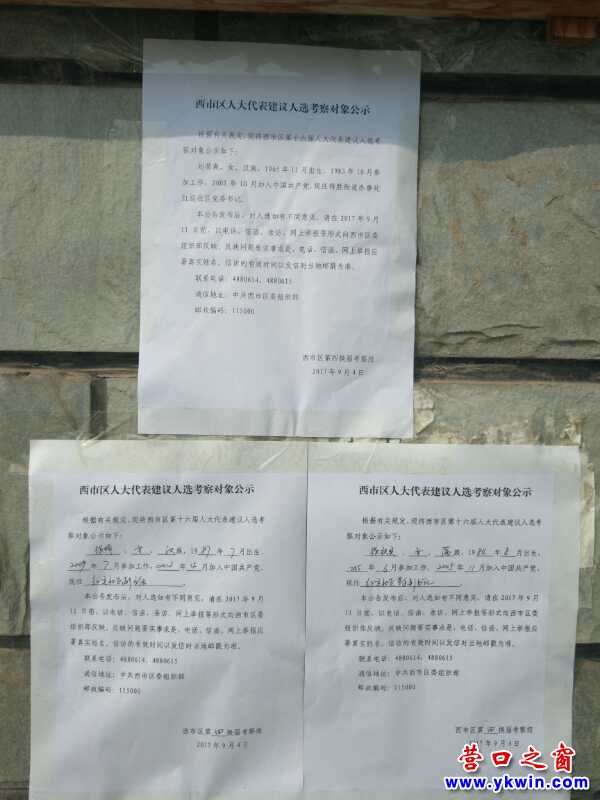 西市区人大代表建议人选考察对象公示
根据有关规定,现将西市区第十六届人大代表建议人选考
察对象公示如下:
女,汉族,1965年11月出生,1983年10月参
加工作,2003年10月加入中国共产党,现任得胜街道办事处
社区党委书记。
本公告发布后,对人选如有不同意见,请在2017年9月
11日前,以电话、信函、走访、网上举报等形式向西市区委
组织部反映。反映问题要实事求是,电话、信函、网上举报应
署真实姓名。信访的有效时间以发信时当地邮戳为准。
联系电话:4880614、4880615
通信地址:中共西市区委组织部
邮政编码:115000
西市区第四换届考察组
2017年9月4日
西市区人大代表建议人选考察对象公示
根据有关规定,现将西市区第十六届人大代表建议人选考
察对象公示如下:
女,汉族,19 年7月出生,
2009年7月参加工作,年4月加入中国共产党,
现任
本公告发布后,对人选如有不同意见,请在2017年9月
11日前,以电话、信函、来访、网上举报等形式向西市区委
组织部反映。反映问题要实事求是,电话、信函、网上举报应
署真实姓名。信访的有效时间以发信时当地邮戳为准。
联系电话:4880614、4880615
通信地址:中共西市区委组织部
邮政编码:115000
西市区第四换届考察组
2017年9月4日
西市区人大代表建议人选考察对象公示
根据有关规定,现将西市区第十六届人大代表建议人选考
察对象公示如下:
女,族,19 年8月出生,
月参加工作,年11月加入中国共产党,
现任
本公告发布后,对人选如有不同意见,请在2017年9月
11日前,以电话、信函、走访、网上举报等形式向西市区委
组织部反映。反映问题要实事求是,电话、信函、网上举报应
署真实姓名。信访的有效时间以发信时当地邮戳为准。
联系电话:4880614、4880615
通信地址:中共西市区委组织部
邮政编码:115000
西市区第四换届考察组
2017年9月4日
营口之窗
www.ykwin.com